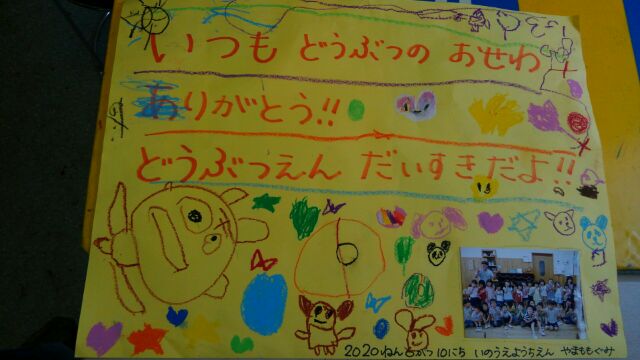 いつも どうぶつの おせわ
ありがとう!!
どうぶつえん だいすきだよ!!
2020ねん がつ10にち いのうえようちえん やまももぐみ